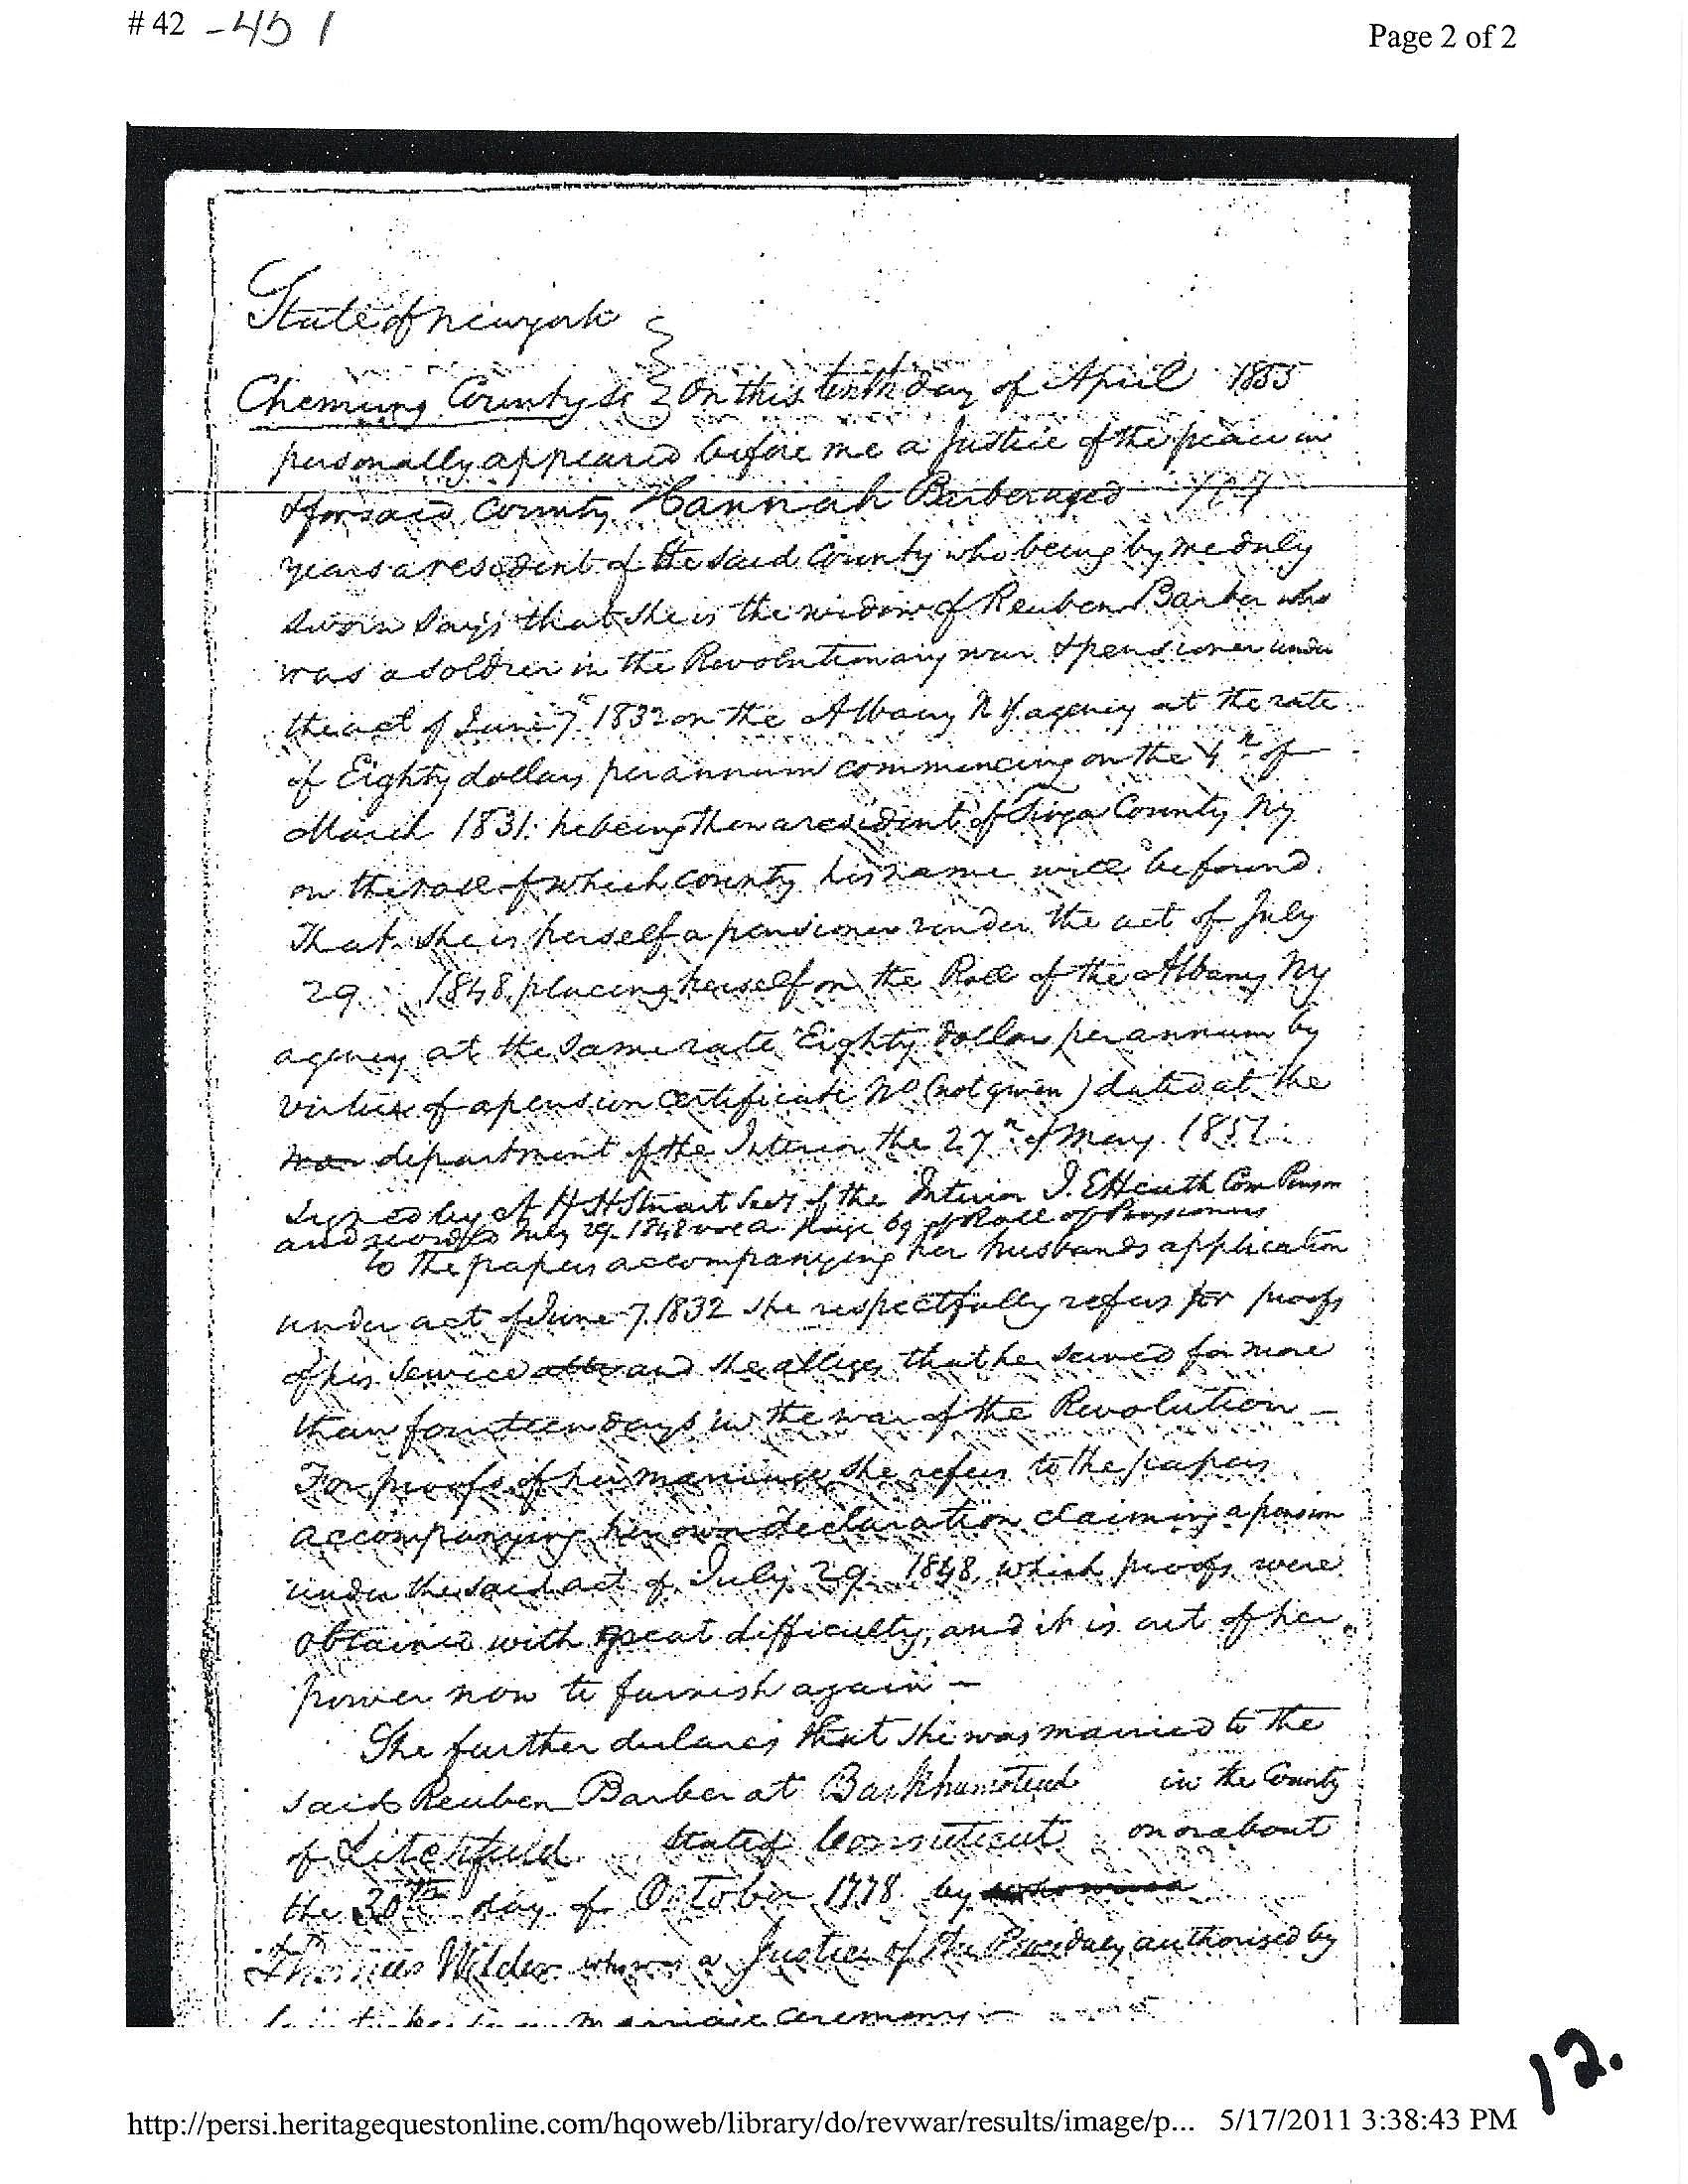 # 42 -45 1
Page 2 of 2
State of Newyork
Chemung County Ss } On this tenth day of April 1855
personally appeared before me a Justice of the peace in
& for said County Hannah Barber aged
years a resident of the said County who being by me duly
sworn says that she is the widow of Reuben Barber who
was a soldier in the Revolutionary war & pensioner under
the act of June 7th 1832 on the Albany N Y. agency at the rate
of Eighty dollars per annum commencing on the 4th of
March 1831. he being then a resident of Tioga County Ny
on the roll of which county his name will be found.
That she is herself a pensioner under the act of July
29 1848, placing herself on the Roll of the Albany Ny
agency at the same rate Eighty dollars per annum by
virtue of a pension certificate No (not given) dated at the
war department of the Interior the 27th of May 1851
signed by A H H Stuart Secy of the Interior J. E Heath Com Pension
and recorded July 29. 1848 Page 69 of Roll of Pensioners
to the papers accompanying her husbands application
under act of June 7. 1832 she respectfully refers for proofs
of his service and she alleges that he served for more
than fourteen days in the war of the Revolution —
For proofs of her marriage she refers to the papers
accompanying her own declaration claiming a pension
under the said act of July 29 1848, which proofs were
obtained with great difficulty, and it is out of her
power now to furnish again —
She further declares that she was married to the
said Reuben Barber at Barkhamsted in the County
of Litchfield State of Connecticut on or about
the 30th day of October 1778 by
Thomas Wilder who was a Justice of the Peace duly authorised by
marriage ceremony
12.
http://persi.heritagequestonline.com/hqoweb/library/do/revwar/results/image/p... 5/17/2011 3:38:43 PM